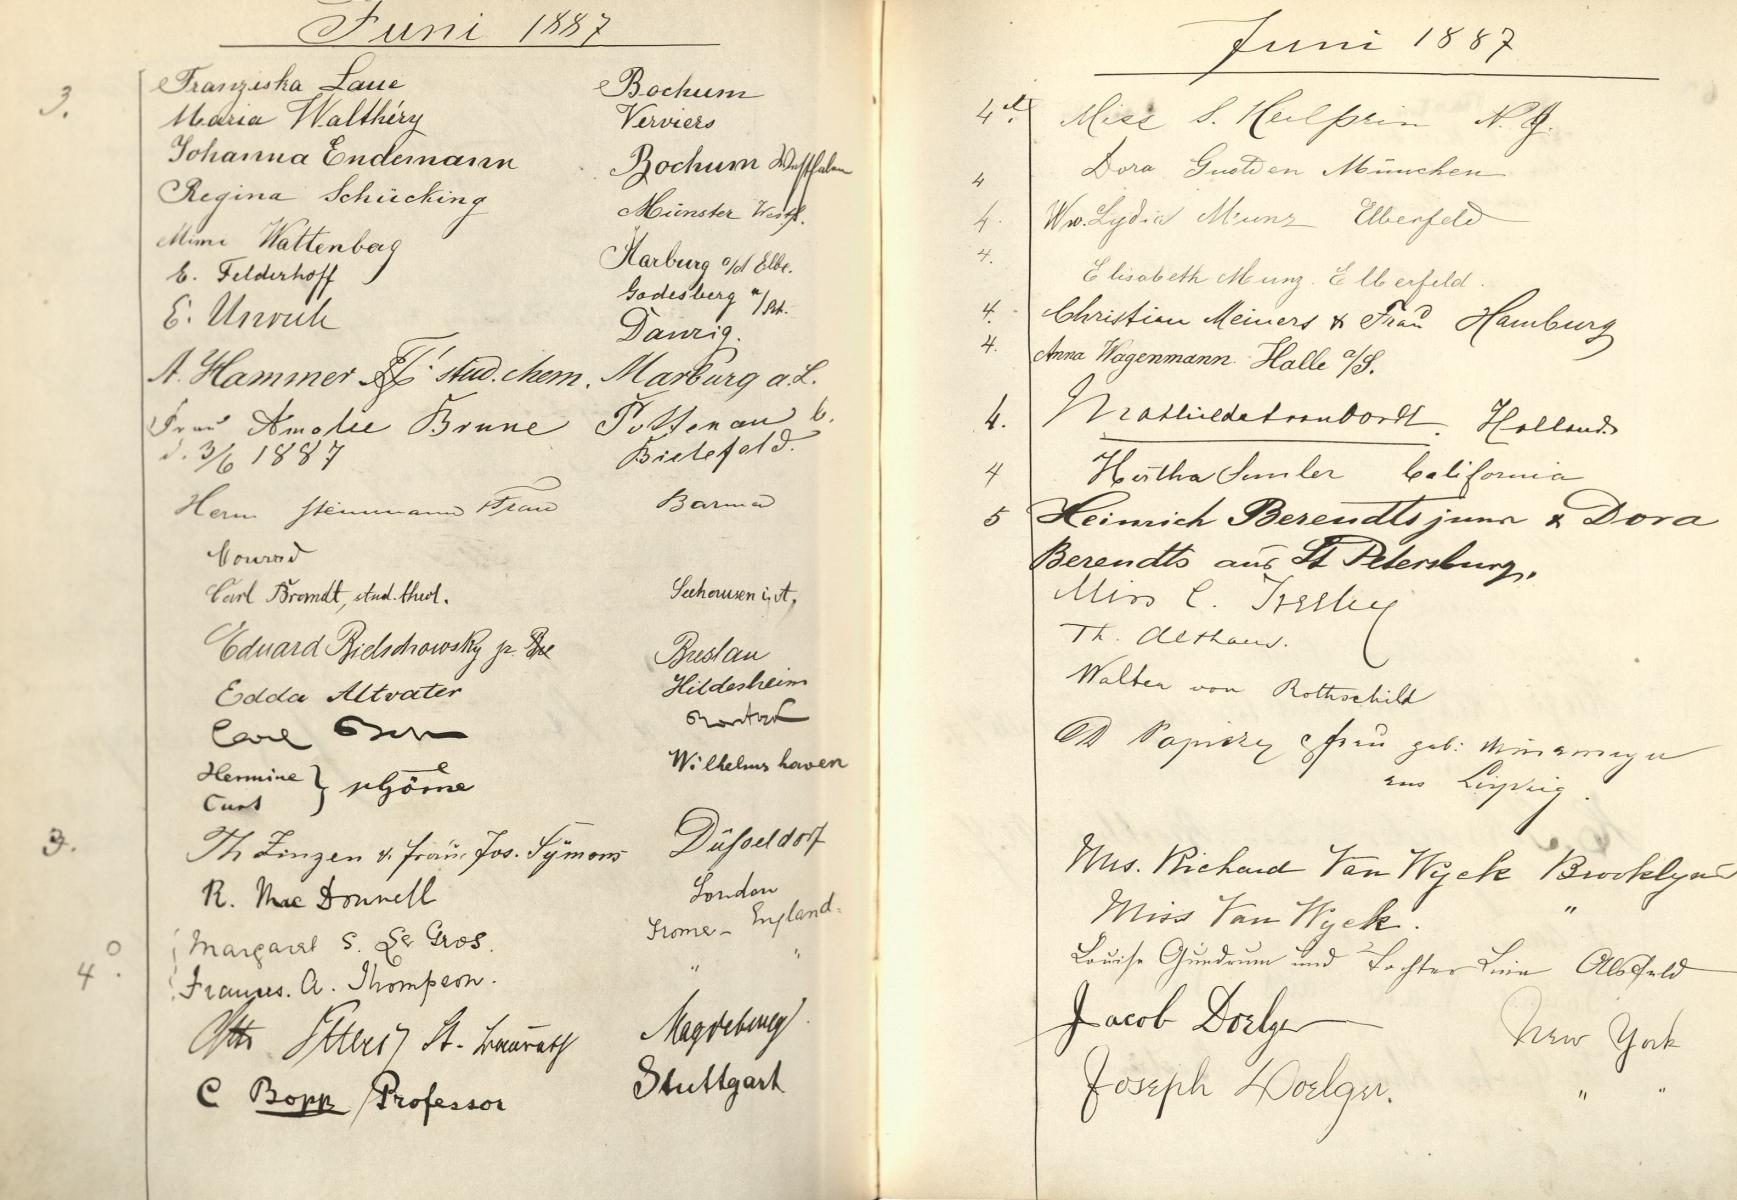 Juni 1887
3.
Franziska Laue Bochum
Maria Walthéry Verviers
Johanna Endemann Bochum Westfalen
Regina Schücking Münster Westf.
Mimi Wattenberg Harburg a/d Elbe.
E. Felderhoff Godesberg a/Rh.
E. Unruh Danzig.
A. Hammer stud. chem. Marburg a. L.
Frau Amalie Brune b.
d. 3/6 1887 Bielefeld.
Herm Steinmann Frau Barmen
Conrad
Carl Brandt, stud. theol. Seehausen i. A.
Eduard Bielschowsky jr. Breslau
Edda Altvater Hildesheim
Carl Rostock
Hermine } Wilhelmshaven
Curt
3.
Th Zinzen & frau. Jos. Symons Düsseldorf
R. Mac Donnell London
Margaret S. Le Gros. Frome - England.
4.
Frances. A. Thompson. " "
Otto St. Baurath Magdeburg
C Bopp Professor Stuttgart
Juni 1887
4. Miss S. Heilprin N. J.
4 Dora München
4. Ww. Lydia Munz Elberfeld
4. Elisabeth Munz. Elberfeld.
4. Christian Meiners & Frau Hamburg
4. Anna Wagenmann. Halle a/S.
4. Holland.
4 Hertha Semler California
5 Heinrich Berendts junr & Dora
Berendts aus St Petersburg.
Miss C.
Th. Althaus.
Walter von Rothschild
frau geb:
aus Leipzig.
Mrs. Richard Van Wyck Brooklyn
Miss Van Wyck. "
Louise Gundrum und Tochter Alsfeld
Jacob Doelger New York
Joseph Doelger. " "